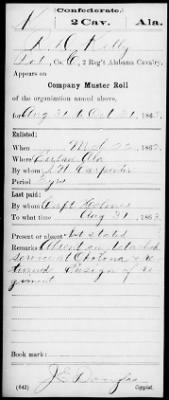 Confederate.
K 2 Cav. Ala.
Kelly
Co. 2 Reg't Alabama Cavalry.
Appears on
Company Muster Roll
of the organization named above,
for Aug 31 to Oct 31, 186
Enlisted:
When 22, 186
Where Ala
By whom Carpenter
Period 3 yrs
Last paid:
By whom Capt Holmes
To what time Aug 31, 186
Present or absent Not stated
Remarks: Absent on detached
service at Okolona
Ensign of
Book mark:
J E Douglas
(642) Copyist.